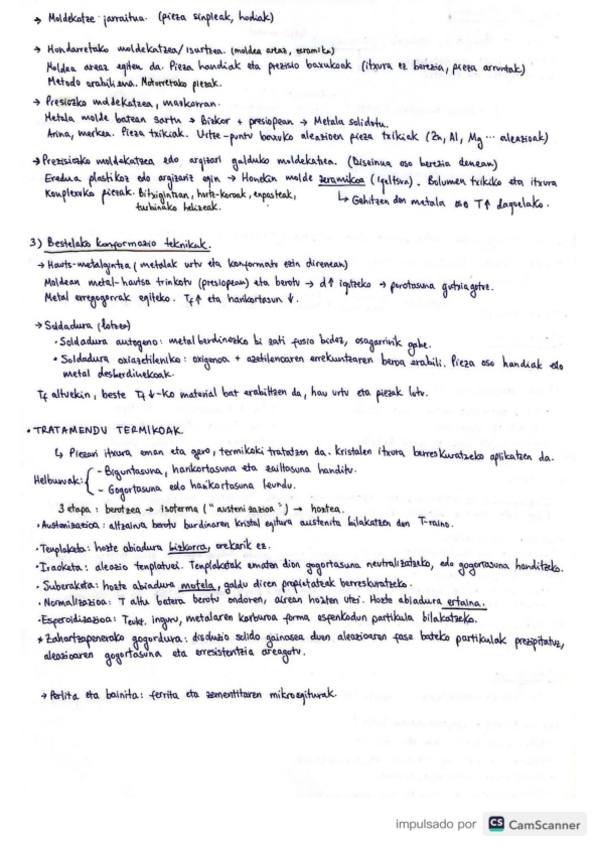 → Moldekatze jarraitua. (pieza sinpleak, hodiak)
→ Hondarretako moldekatzea/isurtzea. (moldea areaz, zeramika)
Moldea areaz egiten da. Pieza handiak eta prezisio baxukoak (itxura ez berezia, pieza arruntak)
Metodo erabiliena. Motorretako piezak.
→ Presiozko moldekatzea, maskorran.
Metala molde batean sartu → Bizkor + presiopean → Metala solidotu.
Arina, merkea. Pieza txikiak. Urtze-puntu baxuko aleazioen pieza txikiak (Zn, Al, Mg ... aleazioak)
→ Prezisiozko moldekatzea edo argizari galduko moldekatzea. (Diseinua oso berezia denean)
Eredua plastikoz edo argizariz egin → Honekin molde zeramikoa (igeltsua). Bolumen txikiko eta itxura
konplexuko piezak. Bitxigintzan, hortz-koroak, enpasteak,
↳ Gehitzen den metala oso T↑ dagoelako.
turbinako helizeak.
3) Bestelako konformazio teknikak.
→ Hauts-metalgintza (metalak urtu eta konformatu ezin direnean)
Moldean metal-hautsa trinkotu (presiopean) eta berotu → d↑ igotzeko → porotasuna gutxiagotze.
Metal erregogorrak egiteko. Tf↑ eta harikortasun ↓.
→ Soldadura (lotzea)
• Soldadura autogeno: metal berdinezko bi zati fusio bidez, osagarririk gabe.
• Soldadura oxiazetileniko: oxigenoa + azetilenoaren errekuntzaren beroa erabili. Pieza oso handiak edo
metal desberdinekoak.
Tf altuekin, beste Tf↓-ko material bat erabiltzen da, hau urtu eta piezak lotu.
• TRATAMENDU TERMIKOAK.
↳ Piezari itxura eman eta gero, termikoki tratatzen da. Kristalen itxura berreskuratzeko aplikatzen da.
Helburuak: { - Biguntasuna, harikortasuna eta zailtasuna handitu.
- Gogortasuna edo harikortasuna leundu.
3 etapa: berotzea → isoterma ("austenizazioa") → hoztea.
• Austenizazioa: altzairua berotu burdinaren kristal egitura austenita bilakatzen den T-raino.
• Tenplaketa: hozte abiadura bizkorra, orekarik ez.
• Iraoketa: aleazio tenplatuei. Tenplaketak ematen dion gogortasuna neutralizatzeko, edo gogortasuna handitzeko.
• Suberaketa: hozte abiadura motela, galdu diren propietateak berreskuratzeko.
• Normalizazioa: T altu batera berotu ondoren, airean hozten utzi. Hozte abiadura ertaina.
• Esperoidizazioa: Teukt. inguru, metalaren karburoa forma esferikodun partikula bilakatzeko.
* Zahartzapeneko gogordura: disoluzio solido gainasea duen aleazioaren fase bateko partikulak prezipitatuz,
aleazioaren gogortasuna eta erresistentzia areagotu.
→ Perlita eta bainita: ferrita eta zementitaren mikroegiturak.
impulsado por CS CamScanner